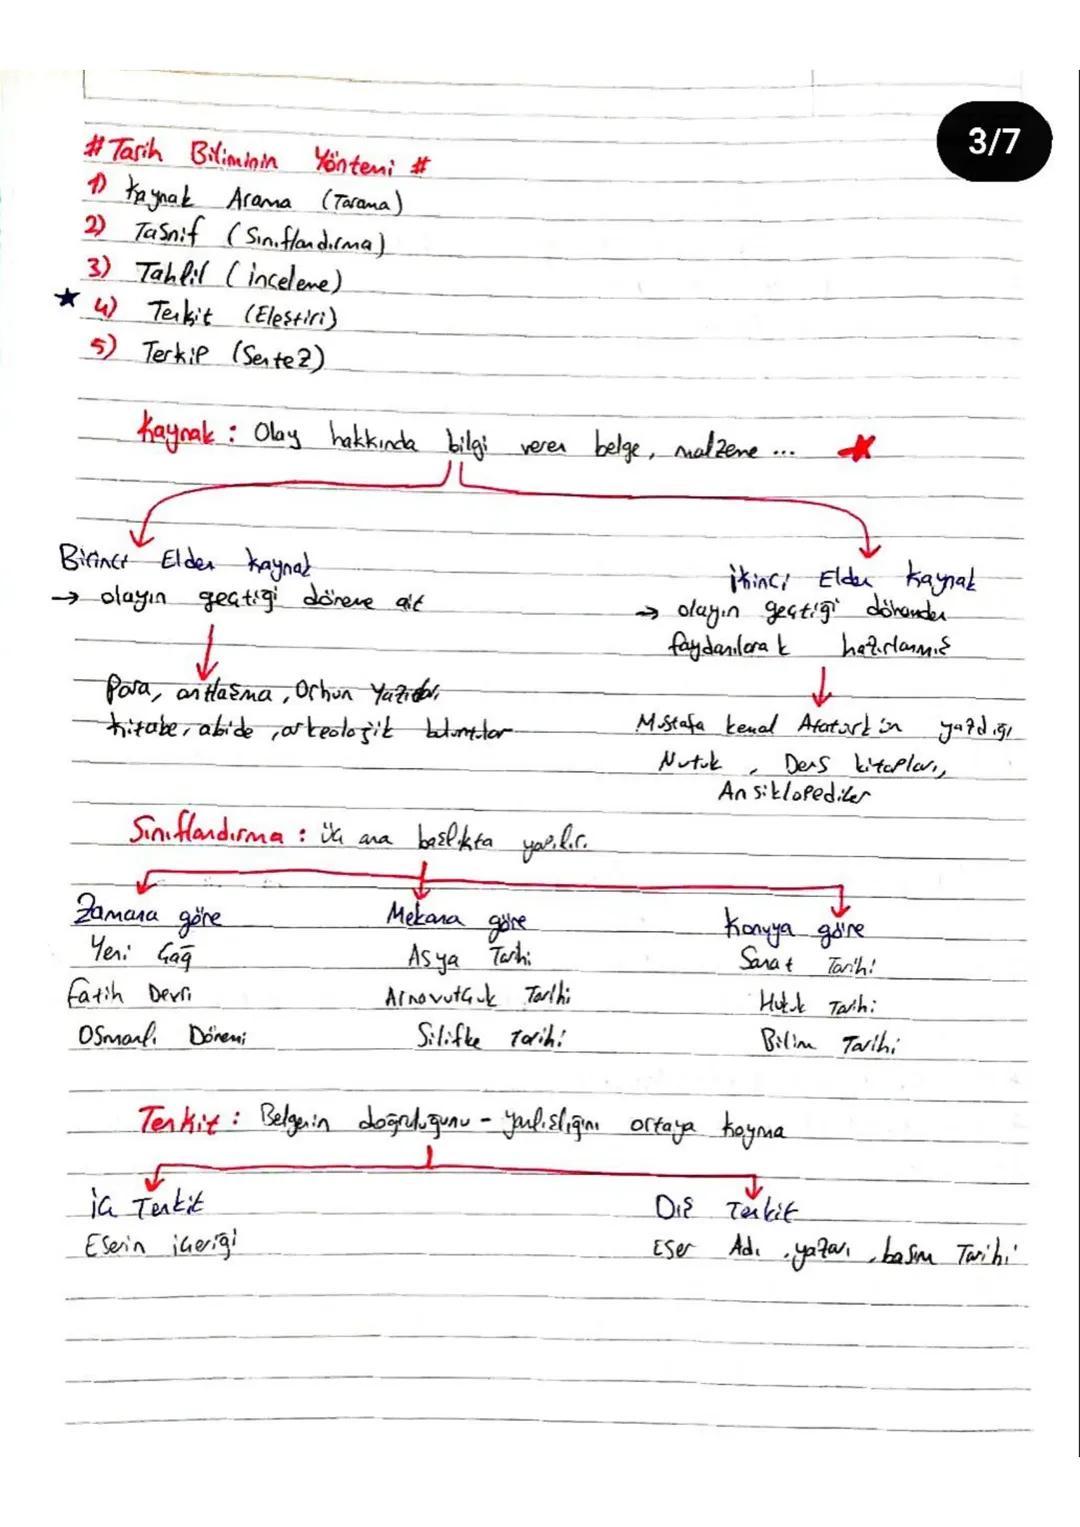 3/7
# Tarih Biliminin Yöntemi #
1) Kaynak Arama (Tarama)
2) Tasnif (Sınıflandırma)
3) Tahlil (inceleme)
★ 4) Tenkit (Eleştiri)
5) Terkip (Sentez)
Kaynak : Olay hakkında bilgi veren belge, malzeme ...
Birinci Elden kaynak
→ olayın geçtiği döneme ait
Para, antlaşma, Orhun Yazıtları,
kitabe, abide, arkeolojik buluntular
İkinci Elden Kaynak
→ olayın geçtiği dönemden
faydanılarak hazırlanmış
Mustafa kemal Atatürk'ün yazdığı
Nutuk, Ders kitapları,
Ansiklopediler
Sınıflandırma : üç ana başlıkta yapılır.
Zamana göre
Yeni Çağ
Fatih Devri
Osmanlı Dönemi
Mekana göre
Asya Tarihi
Arnavutçuk Tarihi
Silifke Tarihi
Konuya göre
Sanat Tarihi
Hukuk Tarihi
Bilim Tarihi
Tenkit : Belgenin doğruluğunu - yanlışlığını ortaya koyma
iç Tenkit
Eserin içeriği
Dış Tenkit
Eser Adı, yazarı, basım Tarihi